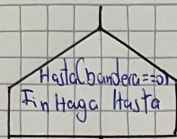 Hasta(bandera==0)
Fin Haga Hasta